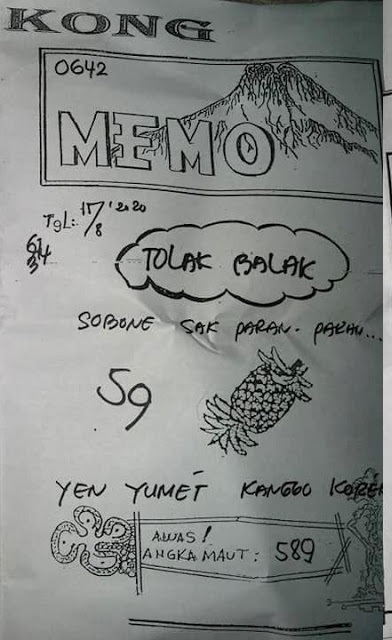 KONG
0642
MEMO
TGL: 17/8 '2020
TOLAK BALAK
SOBONE SAK PARAN. PARAN...
59
YEN YUMET KANGGO KORE
AWAS!
ANGKA MAUT: 589